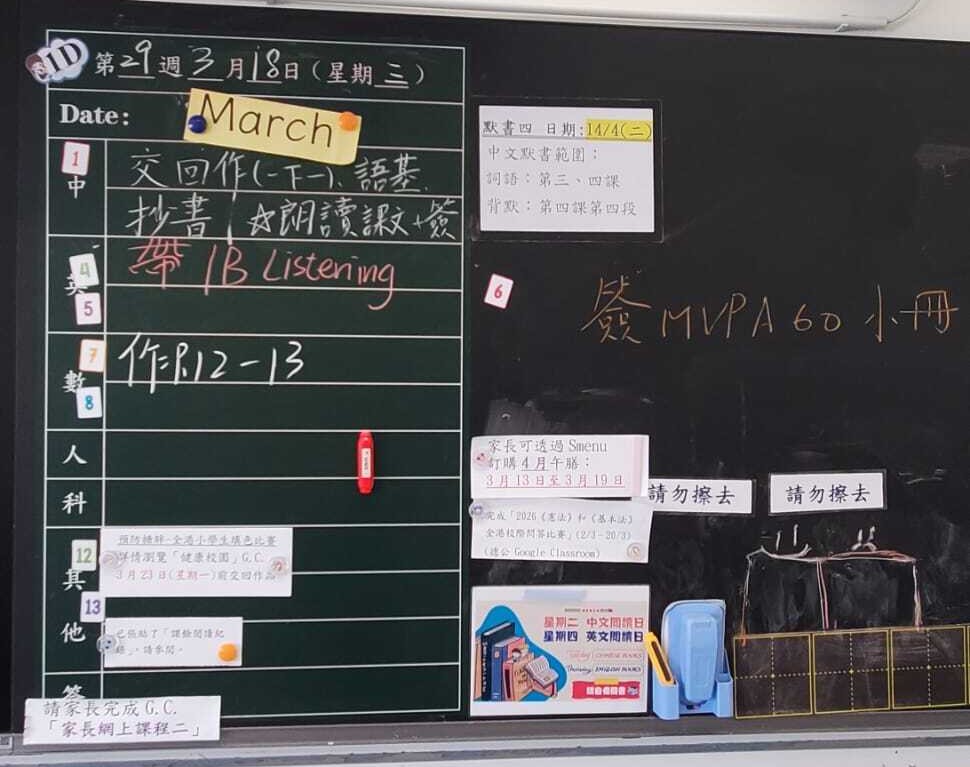 1D 第29週3月18日(星期三)
Date: March
1
中
交回作(一下一)、語基.
抄書 ☆朗讀課文+簽
英
4
5
帶 1B Listening
7
數
8
作:P.12-13
人
科
12
其
13
他
預防糖胖-全港小學生填色比賽
詳情瀏覽「健康校園」G.C.
3月23日(星期一)前交回作品
已張貼了「課餘閱讀紀
錄」,請參閱。
簽
請家長完成G.C.
「家長網上課程二」
默書四 日期:14/4(二)
中文默書範圍:
詞語:第三、四課
背默:第四課第四段
6
簽MVPA60小冊
家長可透過 Smenu
訂購4月午膳:
3月13日至3月19日
完成「2026《憲法》和《基本法》
全港校際問答比賽」(2/3-20/3)
(德公 Google Classroom)
請勿擦去
請勿擦去
星期二 中文閱讀日
星期四 英文閱讀日
Tuesday CHINESE BOOKS
Thursday ENGLISH BOOKS